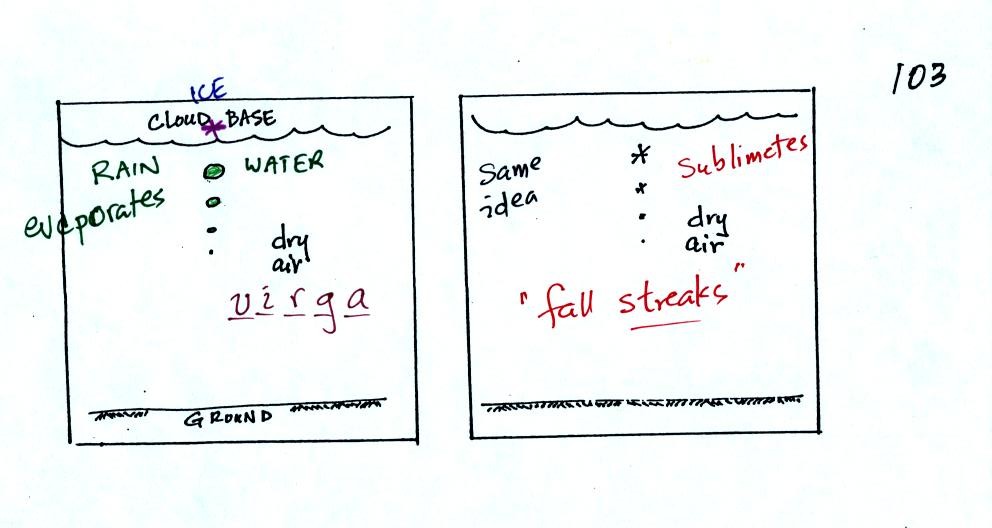 103
ICE
CLOUD BASE
RAIN
evaporates
WATER
dry
air
virga
GROUND
Same
idea
Sublimates
dry
air
"fall streaks"